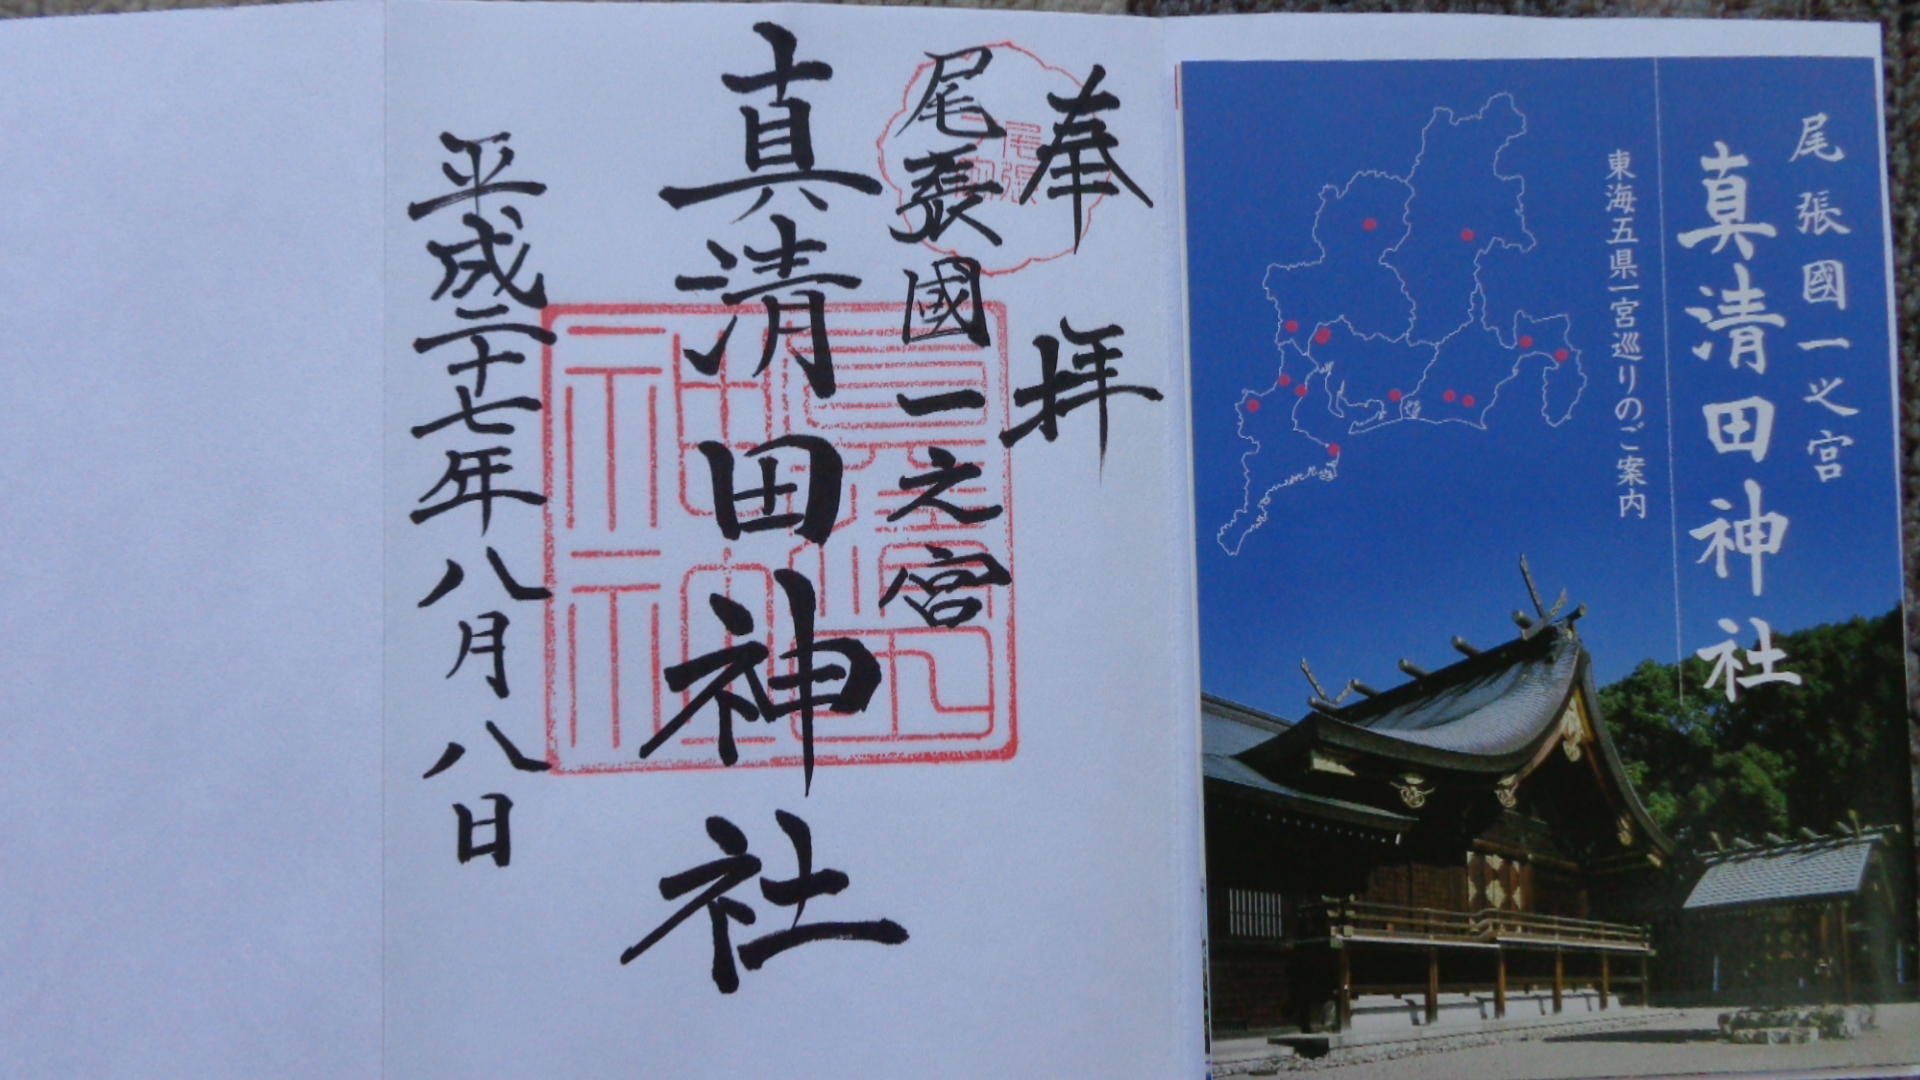 尾張國一之宮
真清田神社
東海五県一宮巡りのご案内
奉拝
尾張國一之宮
真清田神社
平成二十七年八月八日